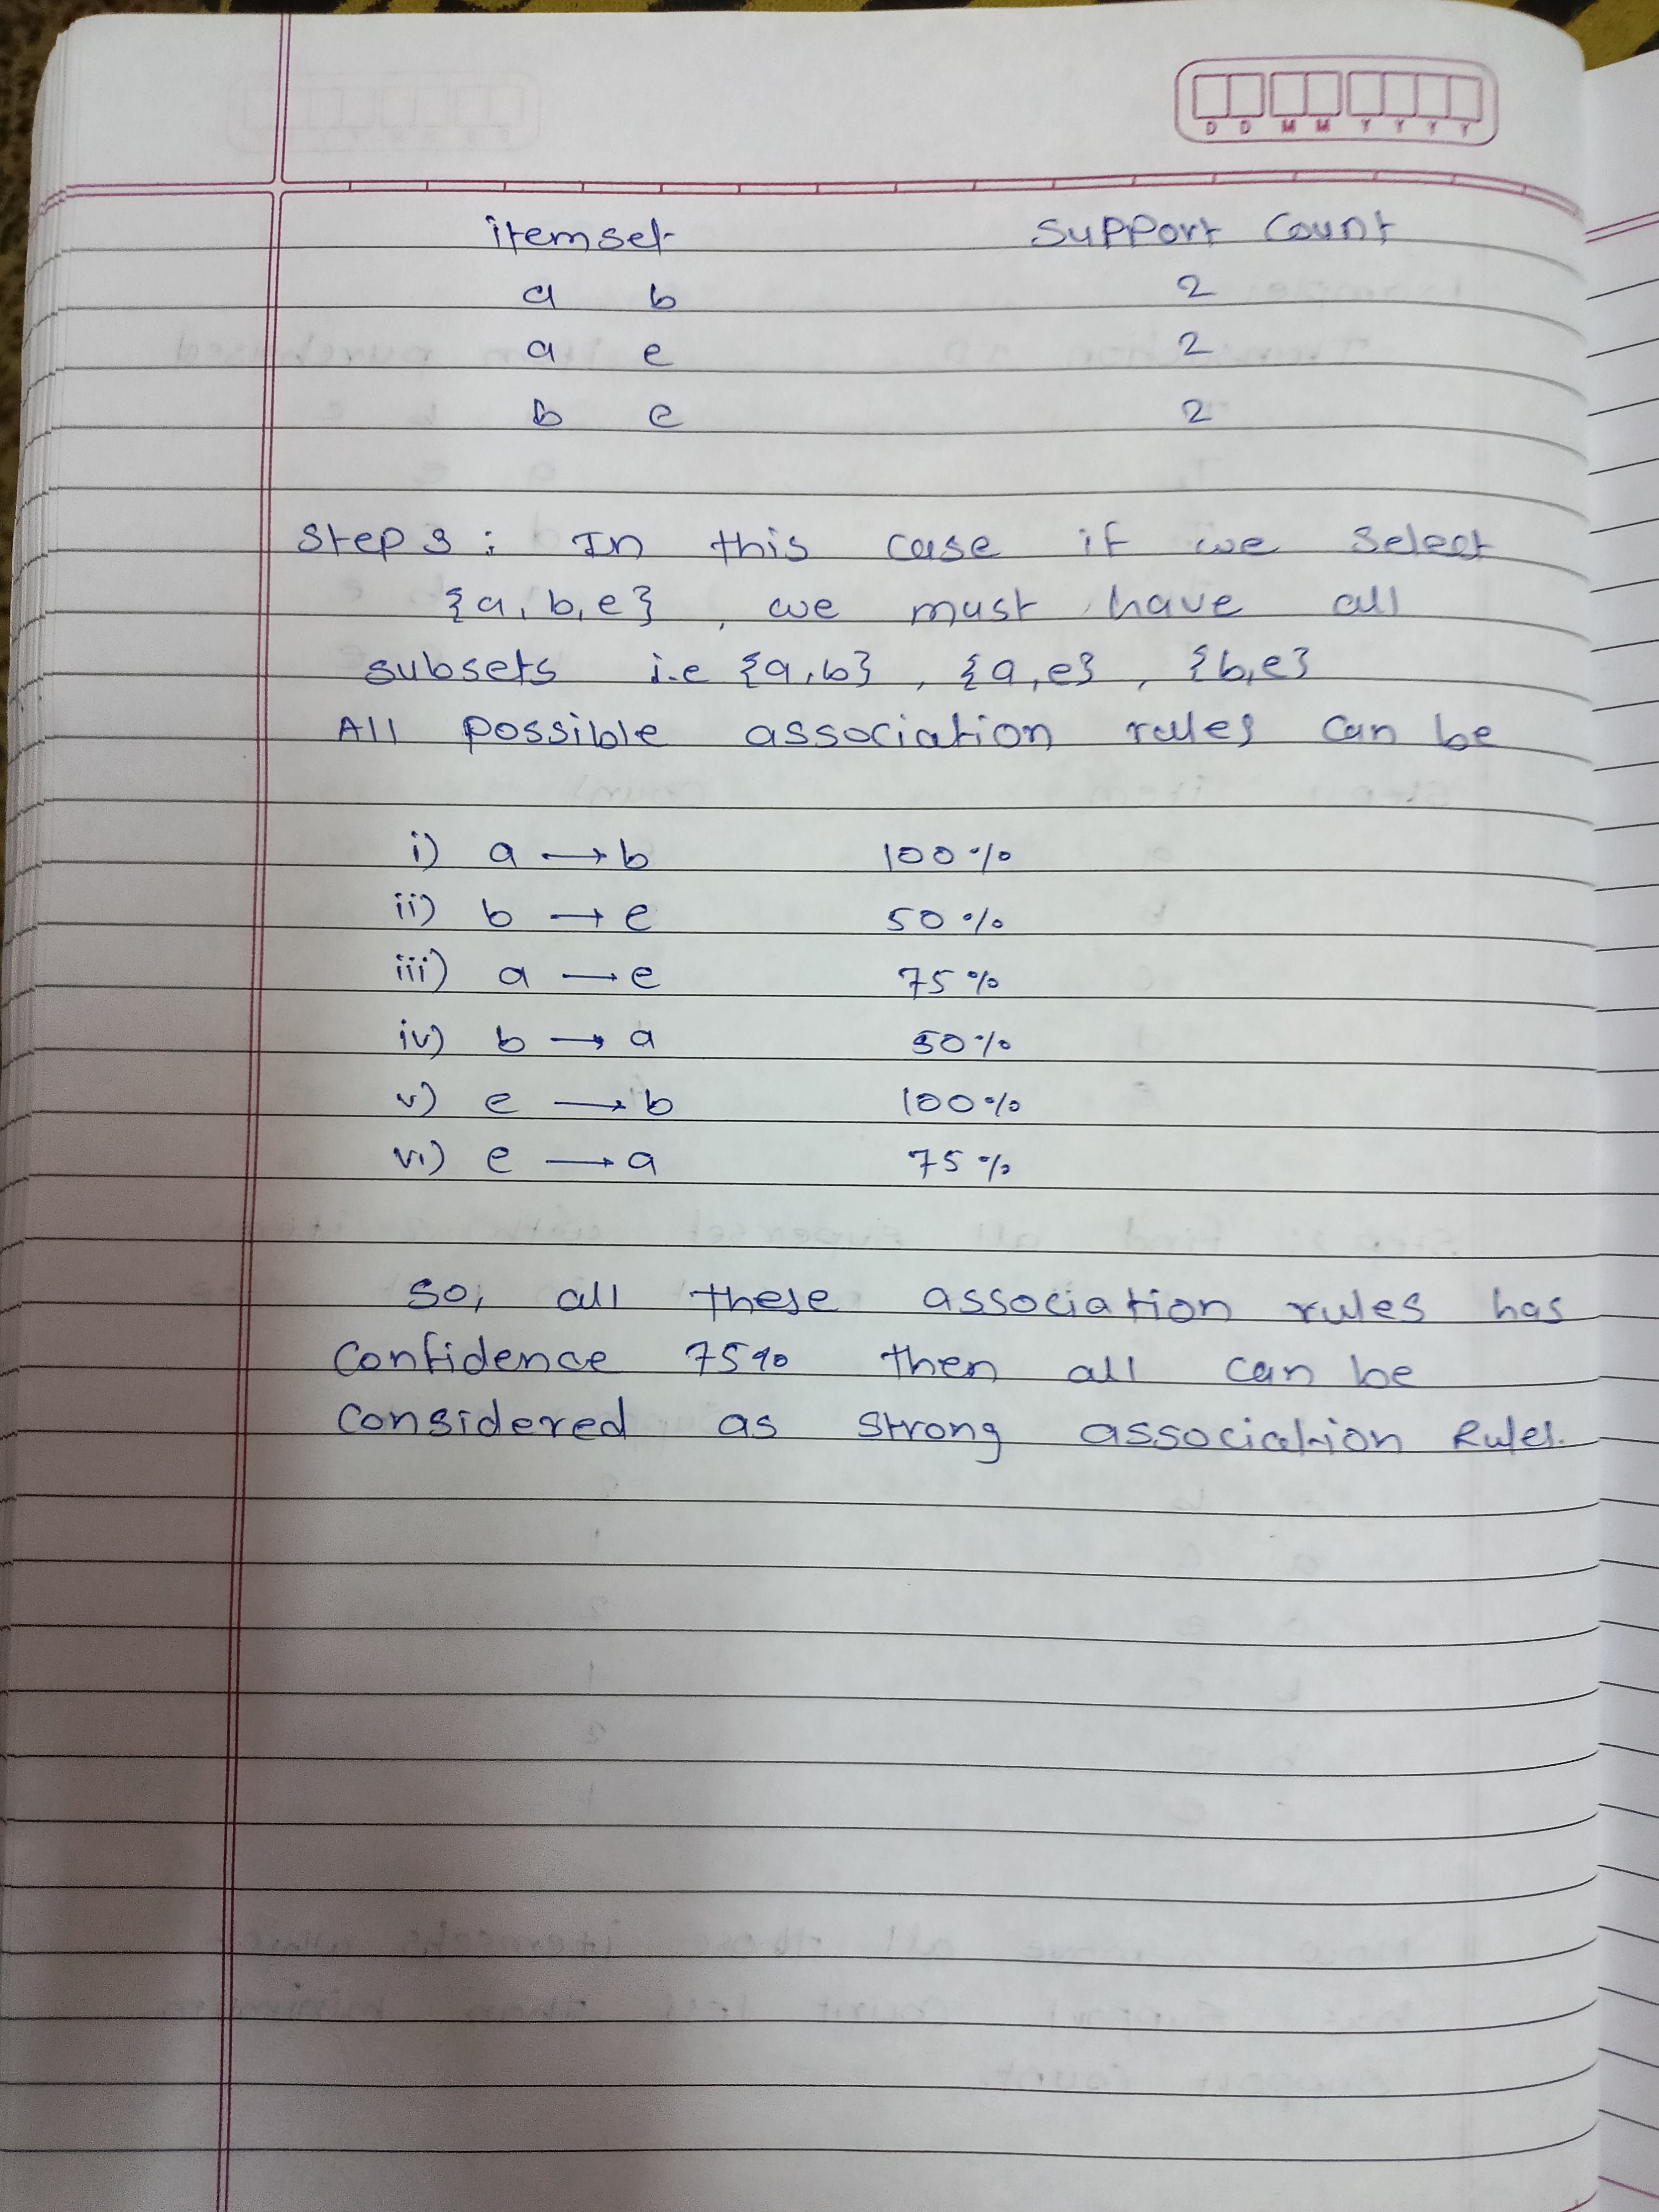 D D M M Y Y Y Y
itemset Support Count
a b 2
a e 2
b e 2
Step 3 : In this case if we select
{a, b, e} , we must have all
subsets i.e {a, b} , {a, e} , {b, e}
All possible association rules can be
i) a → b 100%
ii) b → e 50%
iii) a — e 75%
iv) b → a 50%
v) e → b 100%
vi) e → a 75%
So, all these association rules has
Confidence 75% then all can be
Considered as strong association Rules.